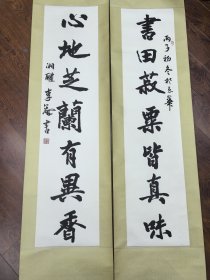 書田菽粟皆真味
丙子初冬於
心地芝蘭有異香
湘醴李書